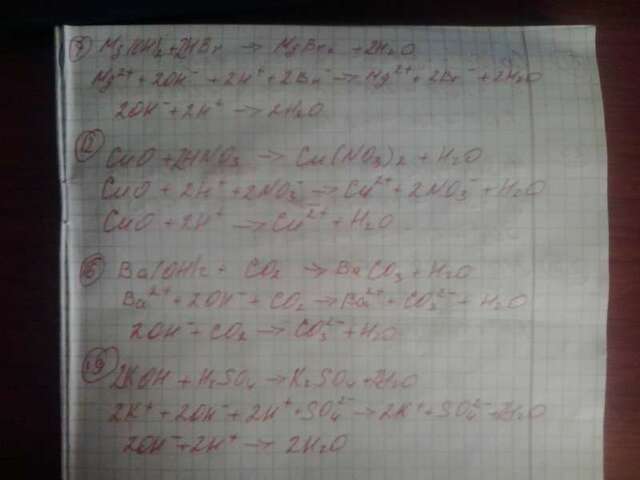 7) Mg(OH)₂ + 2HBr → MgBr₂ + 2H₂O
Mg²⁺ + 2OH⁻ + 2H⁺ + 2Br⁻ → Mg²⁺ + 2Br⁻ + 2H₂O
2OH⁻ + 2H⁺ → 2H₂O
12) CuO + 2HNO₃ → Cu(NO₃)₂ + H₂O
CuO + 2H⁺ + 2NO₃⁻ → Cu²⁺ + 2NO₃⁻ + H₂O
CuO + 2H⁺ → Cu²⁺ + H₂O
Ba(OH)₂ + CO₂ → BaCO₃ + H₂O
Ba²⁺ + 2OH⁻ + CO₂ → Ba²⁺ + CO₃²⁻ + H₂O
2OH⁻ + CO₂ → CO₃²⁻ + H₂O
19) 2KOH + H₂SO₄ → K₂SO₄ + 2H₂O
2K⁺ + 2OH⁻ + 2H⁺ + SO₄²⁻ → 2K⁺ + SO₄²⁻ + 2H₂O
2OH⁻ + 2H⁺ → 2H₂O